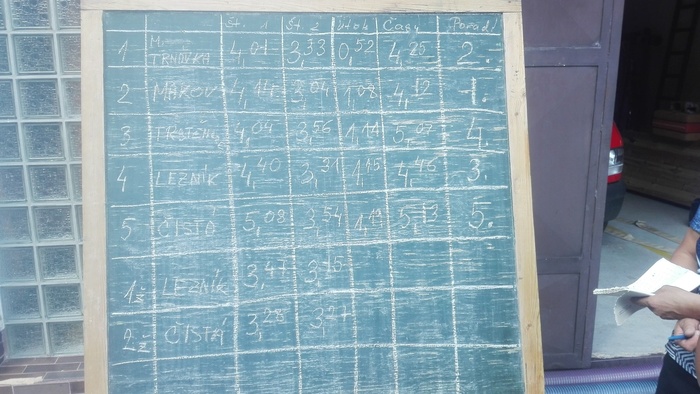 Št. 1 Št. 2 Útok Časy Pořadí
1 M. TRNOVKA 4,01 3,33 0,52 4,25 2.
2 MĚKOV 3,04 1,08 4,12 1.
3. 4,04 3,56 1,14 5,07 4.
4 LEZNÍK 4,40 3,31 1,15 4,46 3.
5 ČISTÁ 5,08 3,54 1,19 5,13 5.
1ž LEZNÍK 3,47 3,15
2ž ČISTÁ 3,28 3,27